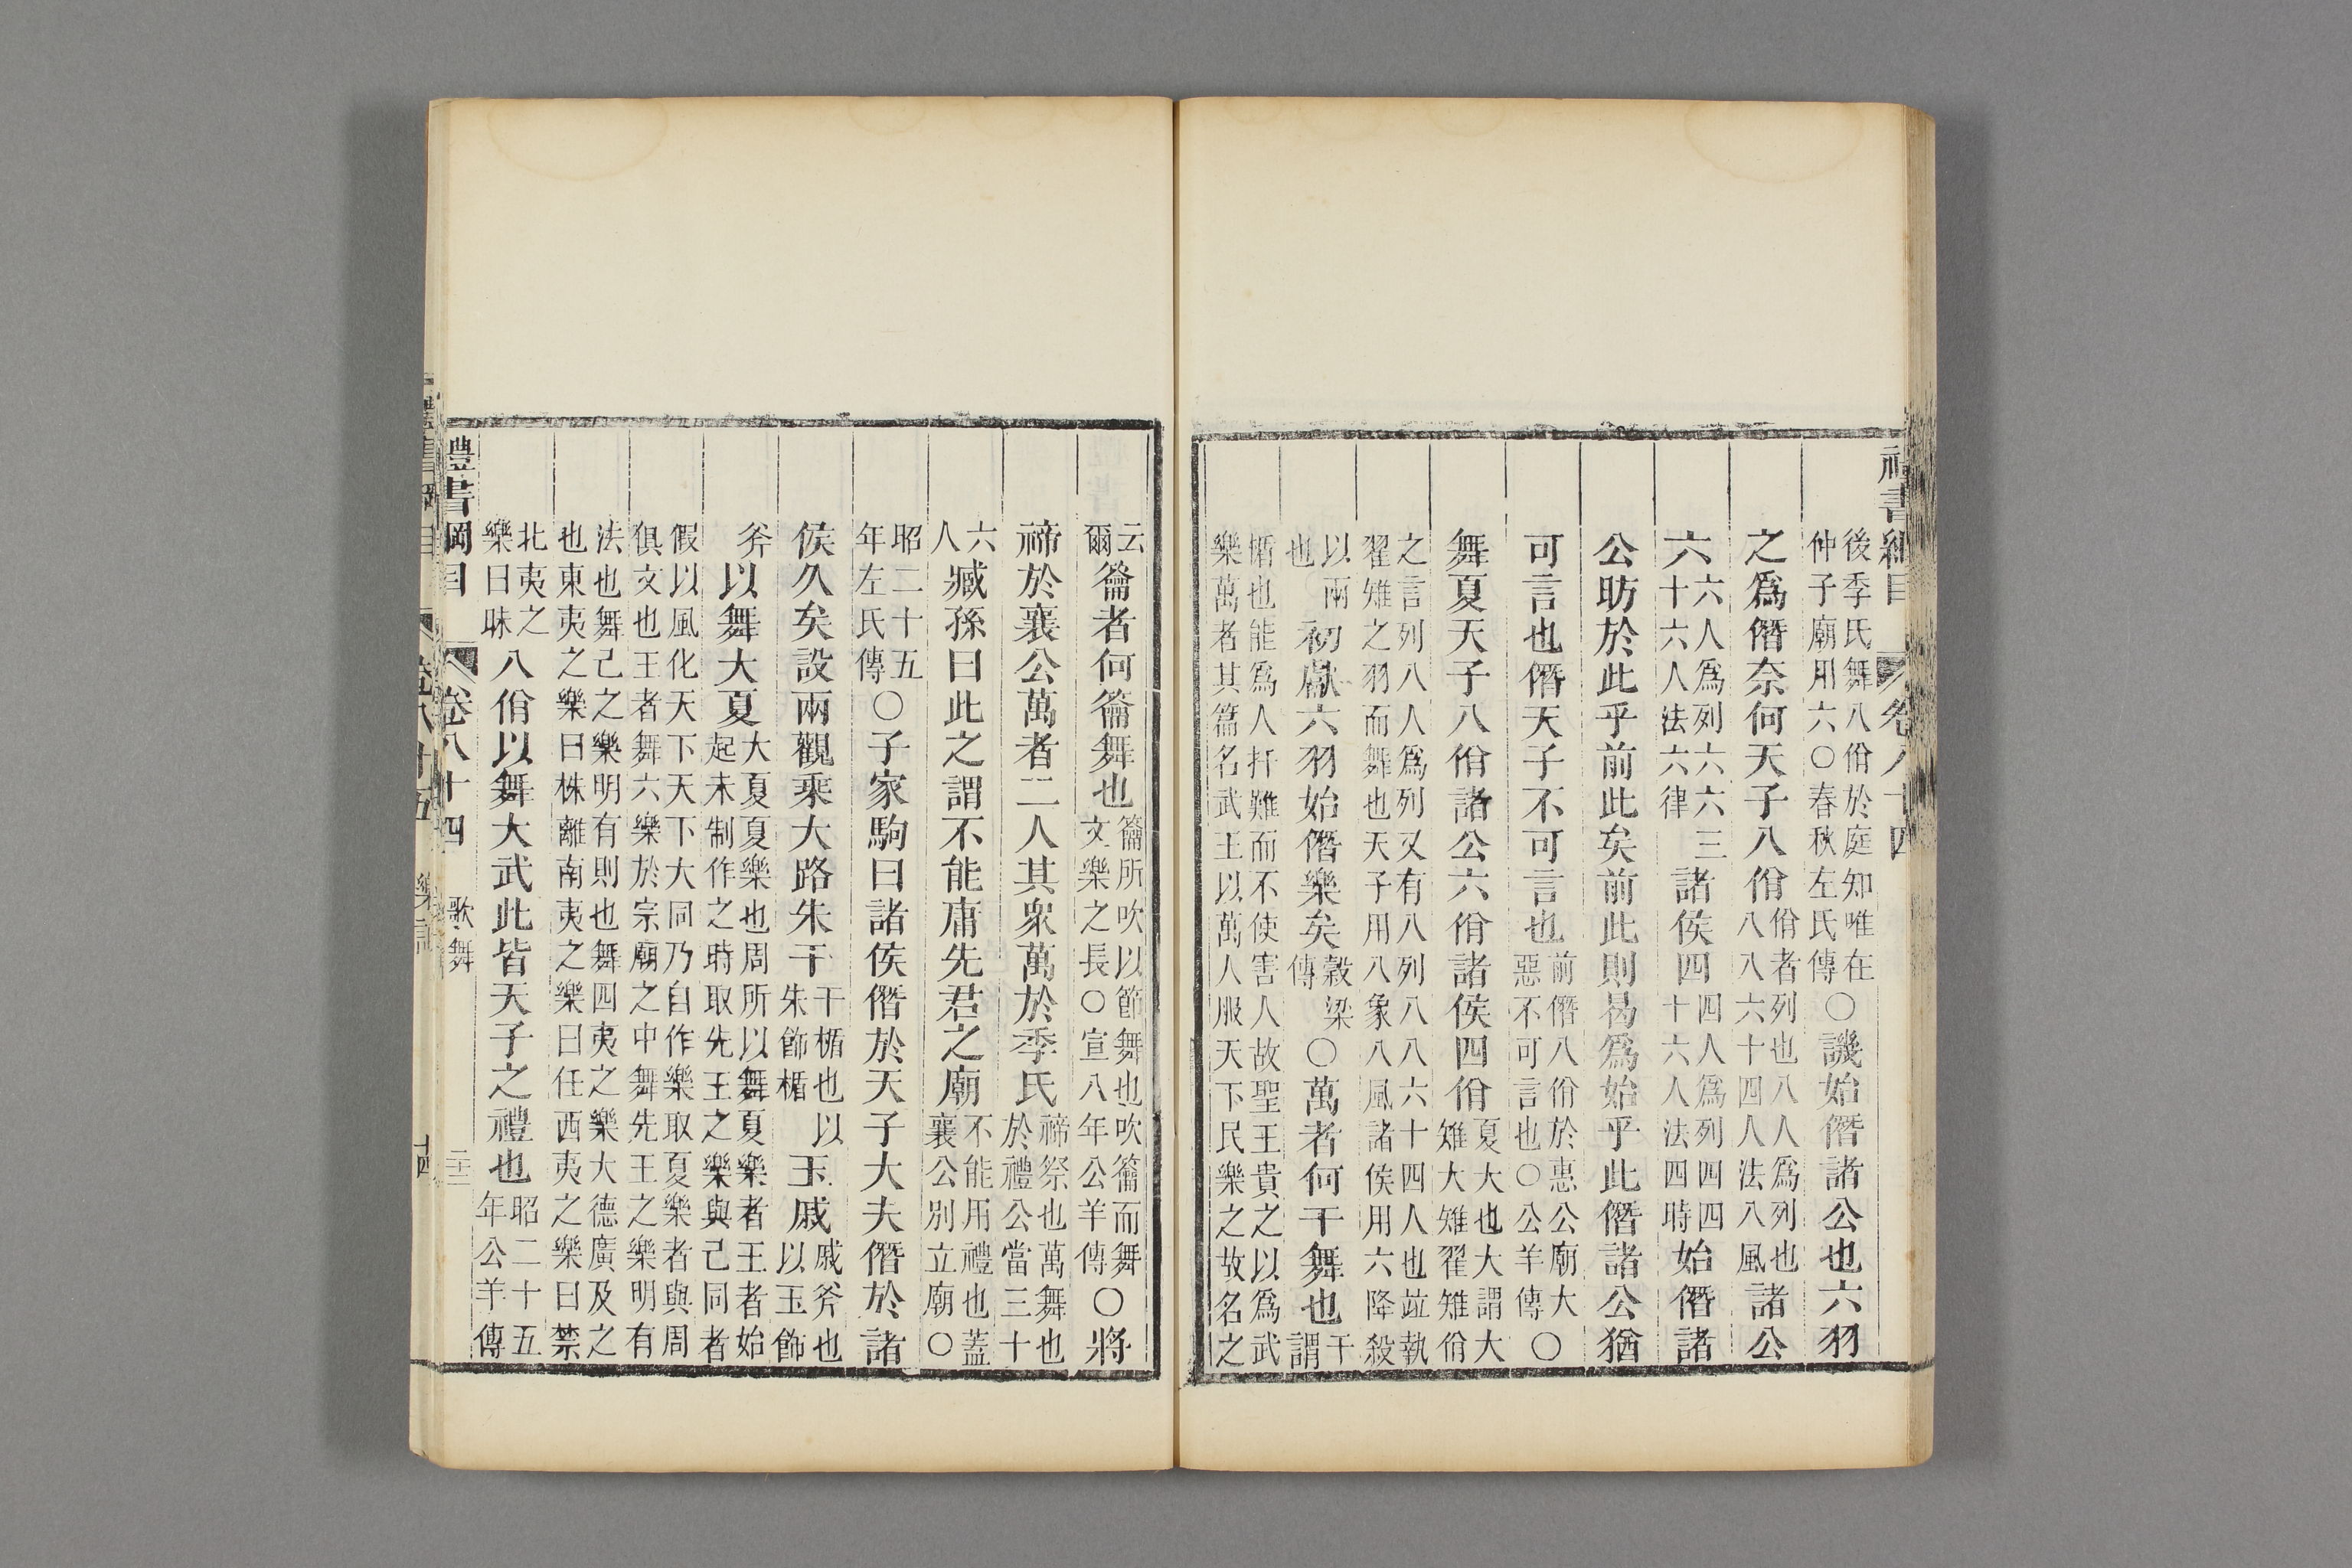 禮書綱目 卷八十四
後季氏舞八佾於庭知唯在仲子廟用六〇春秋左氏傳〇譏始僭諸公也六羽
之爲僭奈何天子八佾佾者列也八人爲列八八六十四人法八風諸公
六六人爲列六六三十六人法六律諸侯四四人爲列四四十六人法四時始僭諸
公昉於此乎前此矣前此則曷爲始乎此僭諸公猶
可言也僭天子不可言也前僭八佾於惠公廟大惡不可言也〇公羊傳〇
舞夏天子八佾諸公六佾諸侯四佾夏大也大謂大雉大雉翟雉佾
之言列八人爲列又有八列八八六十四人也竝執翟雉之羽而舞也天子用八象八風諸侯用六降殺
以兩也初獻六羽始僭樂矣穀梁傳〇萬者何干舞也干謂
楯也能爲人扞難而不使害人故聖王貴之以爲武樂萬者其篇名武王以萬人服天下民樂之故名之
云爾籥者何籥舞也籥所吹以節舞也吹籥而舞文樂之長〇宣八年公羊傳〇將
禘於襄公萬者二人其衆萬於季氏禘祭也萬舞也於禮公當三十
六人臧孫曰此之謂不能庸先君之廟不能用禮也蓋襄公別立廟〇
昭二十五年左氏傳〇子家駒曰諸侯僭於天子大夫僭於諸
侯久矣設兩觀乘大路朱干干楯也以朱飾楯玉戚戚斧也以玉飾
斧以舞大夏大夏夏樂也周所以舞夏樂者王者始起未制作之時取先王之樂與己同者
假以風化天下天下大同乃自作樂取夏樂者與周俱文也王者舞六樂於宗廟之中舞先王之樂明有
法也舞己之樂明有則也舞四夷之樂大德廣及之也東夷之樂曰株離南夷之樂曰任西夷之樂曰禁
北夷之樂曰昧八佾以舞大武此皆天子之禮也昭二十五年公羊傳
禮書綱目 卷八十四 歌舞 二十二